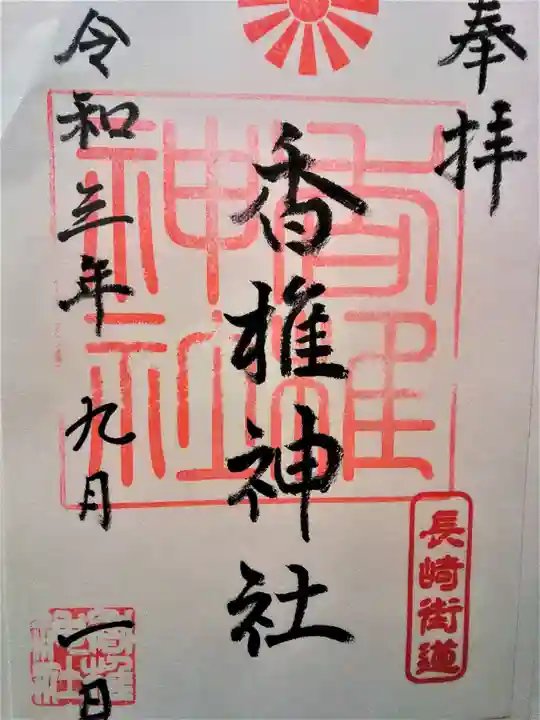 奉拝
香椎神社
香椎神社
長崎街道
令和三年九月一日